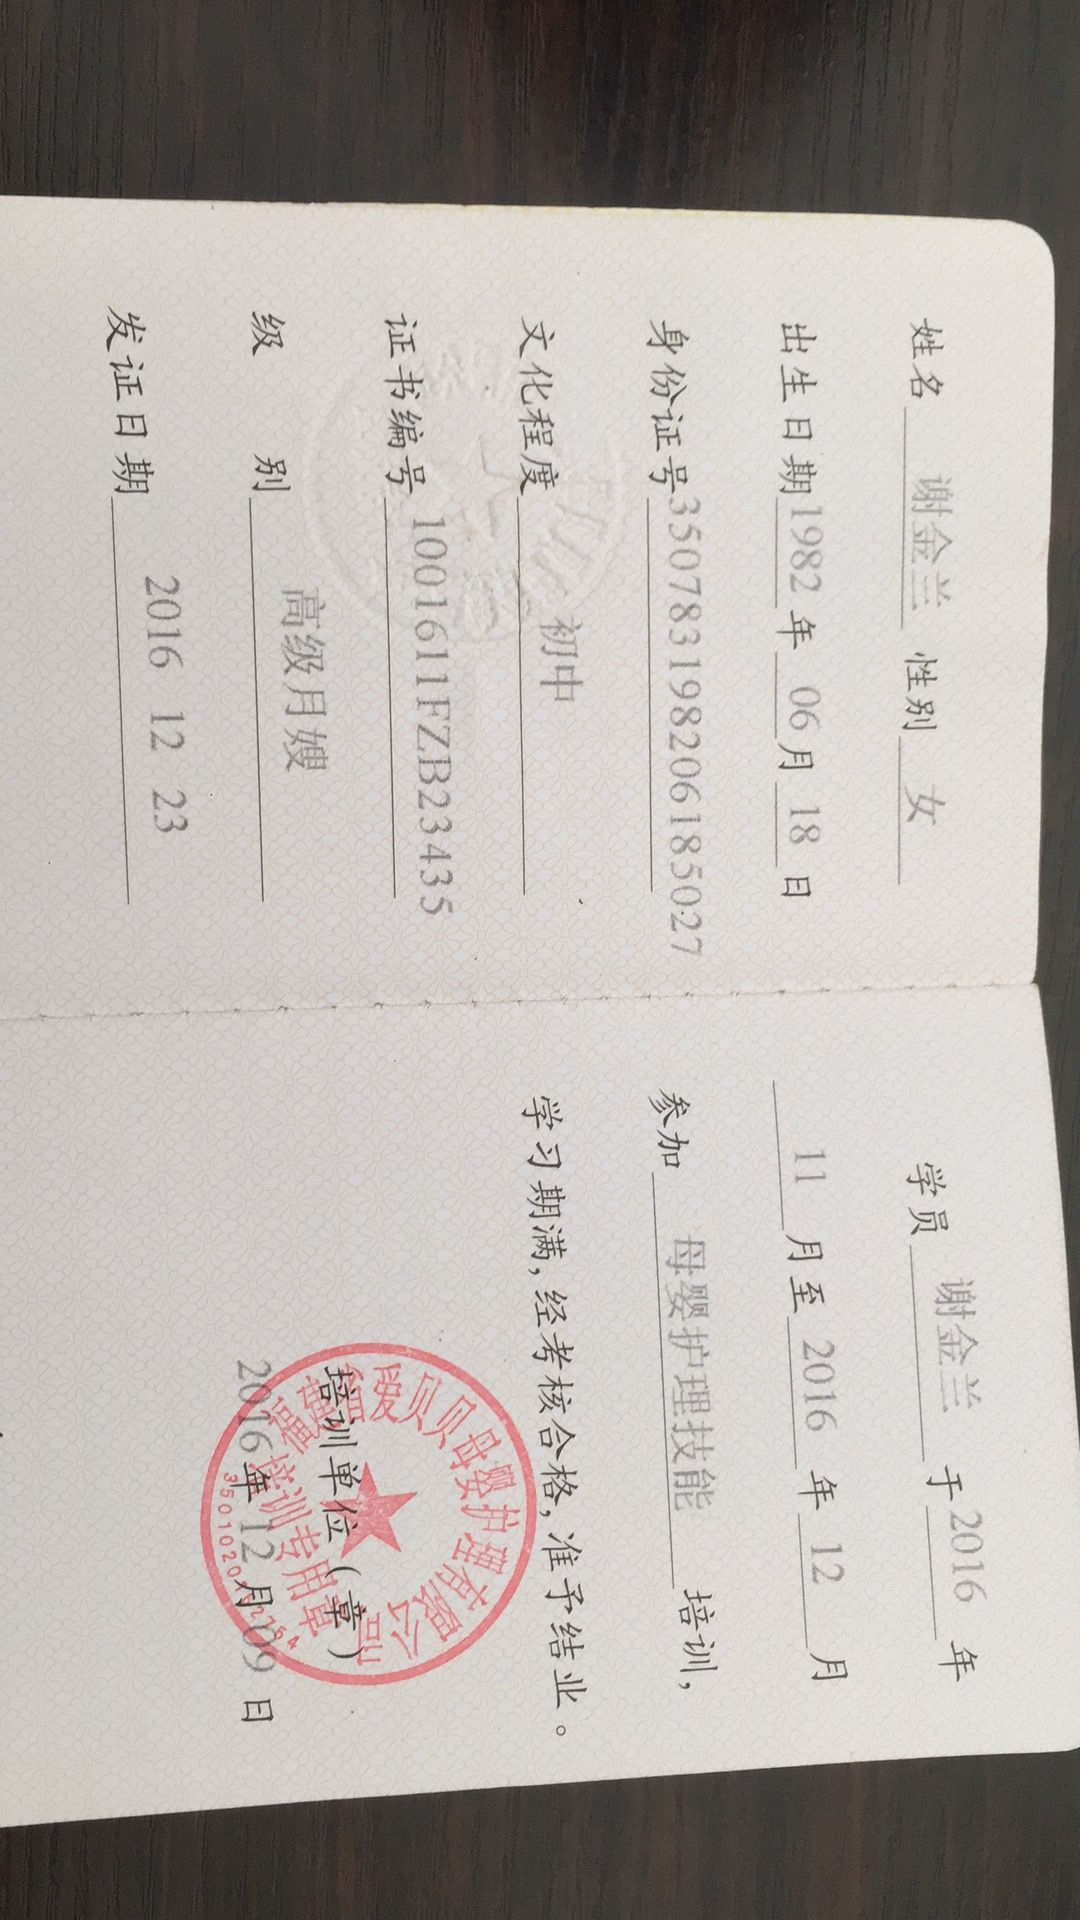 姓名 谢金兰 性别 女
出生日期 1982 年 06 月 18 日
身份证号 350783198206185027
文化程度 初中
证书编号 1001611FZB23435
级 别 高级月嫂
发证日期 2016 12 23
学员 谢金兰 于 2016 年
11 月至 2016 年 12 月
参加 母婴护理技能 培训,
学习期满,经考核合格,准予结业。
培训单位(章)
2016 年 12 月 09 日
贝贝母婴护理有限公司
培训专用章